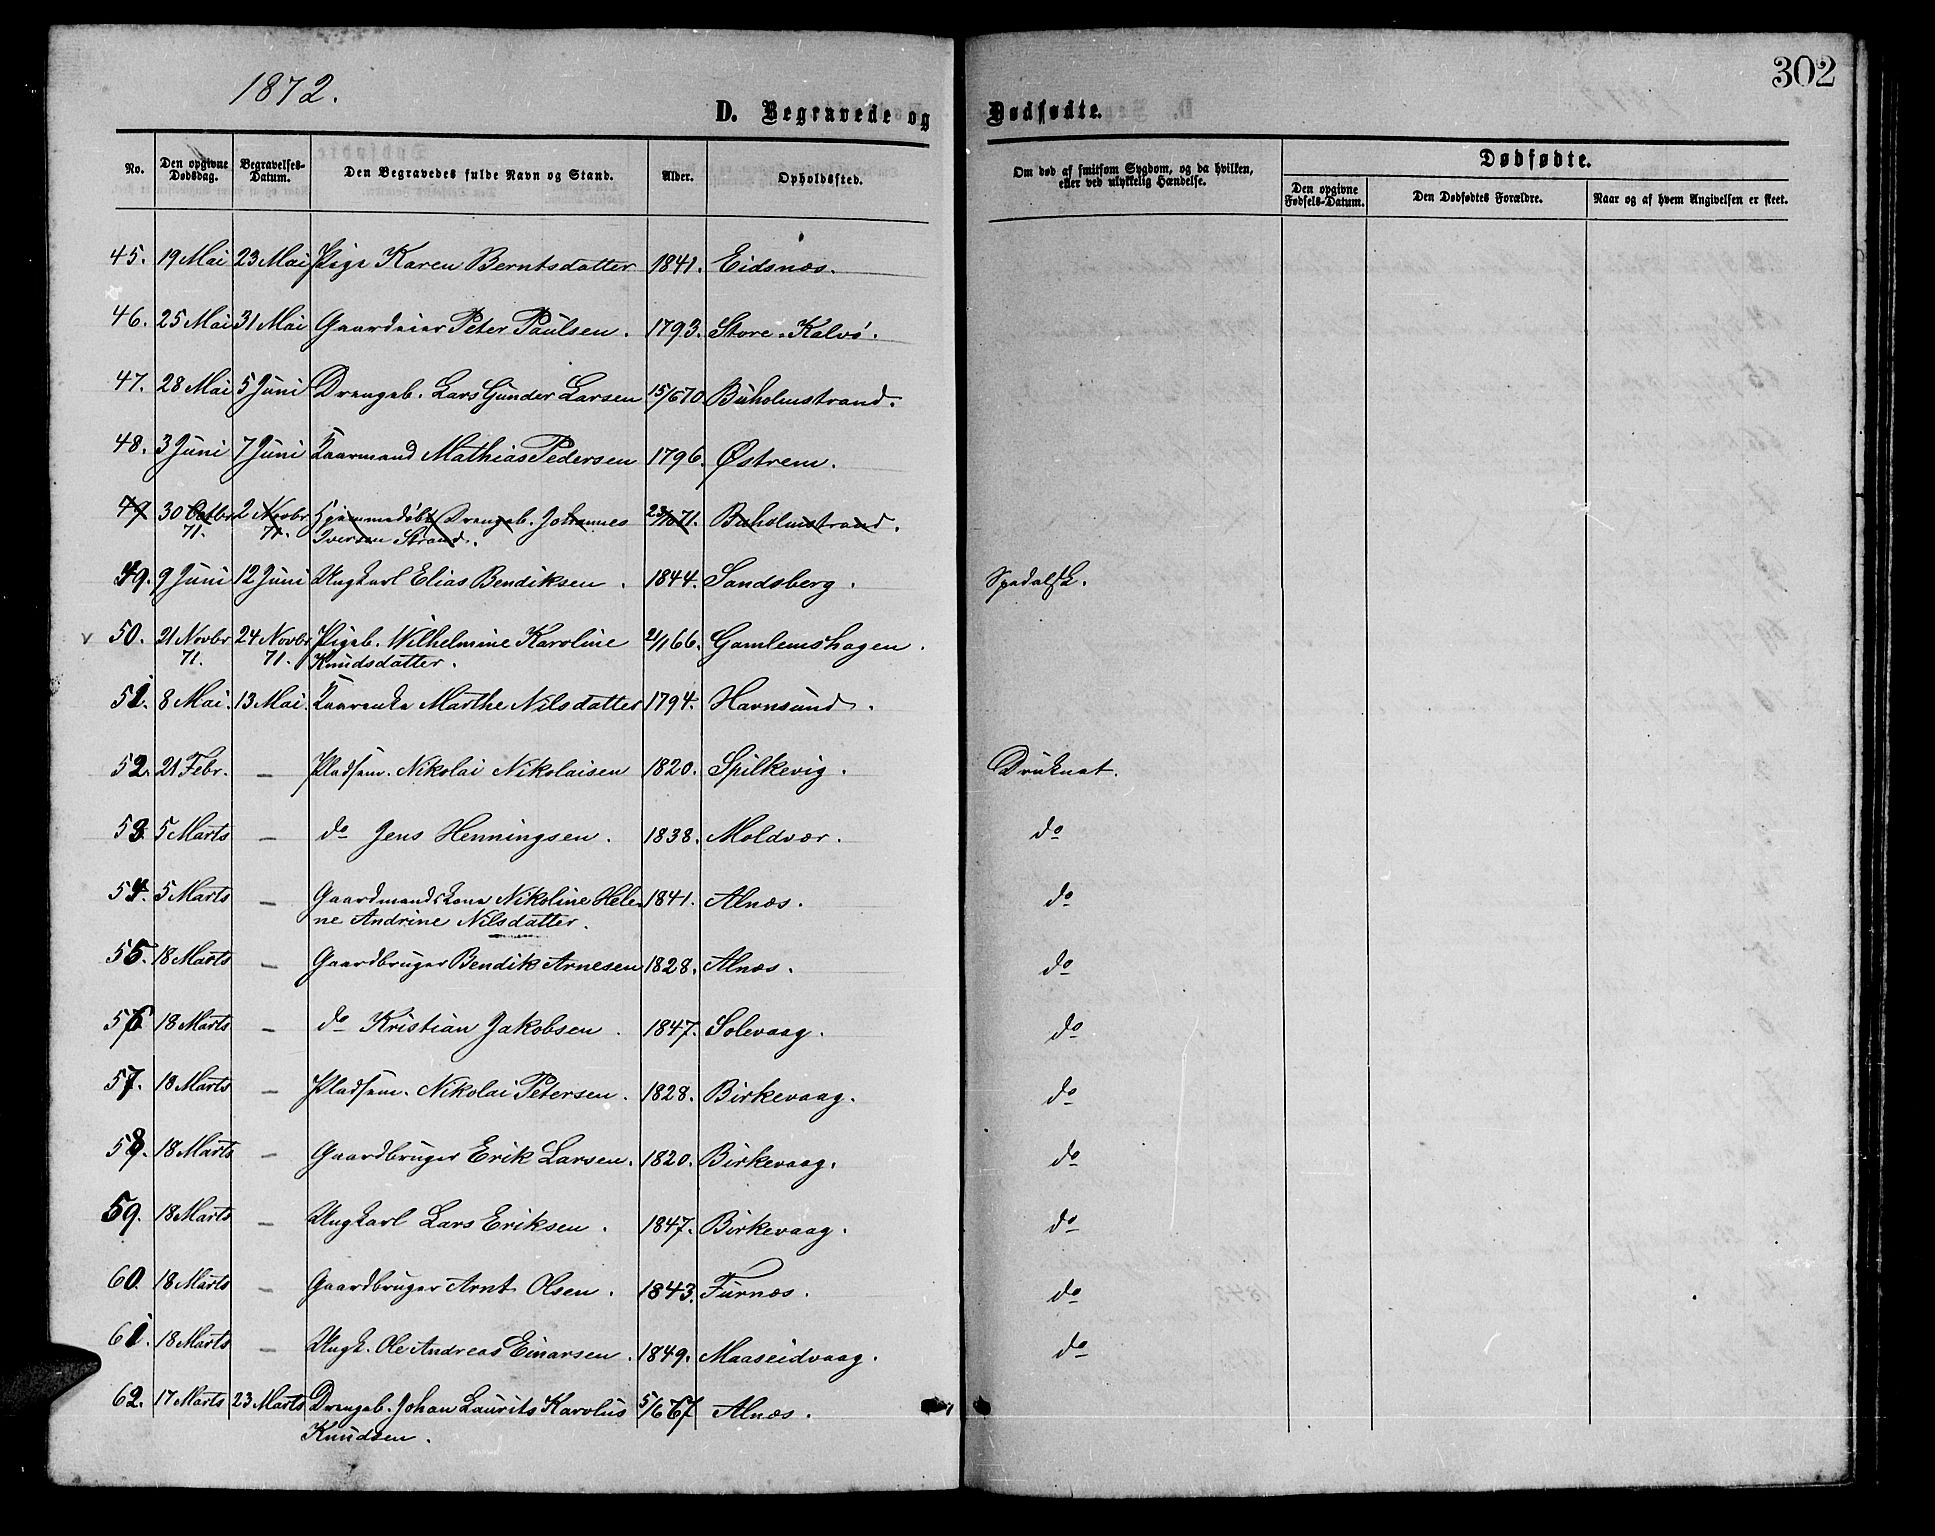 302
1872.
D. Begravede og Dødfødte.
No. Den opgivne Dødsdag. Begravelses-Datum. Den Begravedes fulde Navn og Stand. Alder. Opholdssted. Om død af smitsom Sygdom, og da hvilken, eller ved ulykkelig Hændelse. Dødfødte.
Den opgivne Fødsels-Datum. Den Dødfødtes Forældre. Naar og af hvem Angivelsen er skeet.
45. 19 Mai 23 Mai Pige Karen Berntsdatter 1841. Eidsnæs.
46. 25 Mai 31 Mai Gaardeier Peter Paulsen. 1793. Store-Kalvö.
47. 28 Mai 5 Juni Drengeb. Lars Gunder Larsen 15/6 70. Buholmstrand.
48. 3 Juni 7 Juni Kaarmand Mathias Pedersen 1796. Østrem.
49 30 Octbr 71. 2 Novbr 71. Hjemmedøbt Drengeb. Johannes 23/10 71. Buholmstrand.
Iversen Strand.
49. 9 Juni 12 Juni Ungkarl Elias Bendiksen. 1844. Sandsberg. Spedalsk.
v 50. 21 Novbr 71. 24 Novbr 71. Pigeb. Wilhelmine Karoline 21/1 66. Gamlemshagen.
Knudsdatter.
51. 8 Mai. 13 Mai. Kaarenke Marthe Nilsdatter 1794. Havnsund.
52. 21 Febr. — Pladsem. Nikolai Nikolaisen 1820. Spilkevig. Druknet.
53. 5 Marts — do Jens Henningsen. 1838. Moldvær. do
54. 5 Marts — Gaardmandskone Nikoline Hele- 1841. Alnæs. do
ne Andrine Nilsdatter.
55. 18 Marts — Gaardbruger Bendik Arnesen 1828. Alnæs. do
56 18 Marts — do Kristian Jakobsen. 1847. Solevaag. do
57. 18 Marts — Pladsem. Nikolai Petersen. 1828. Birkevaag. do
58. 18 Marts — Gaardbruger Erik Larsen. 1820. Birkevaag. do
59. 18 Marts — Ungkarl Lars Eriksen. 1847. Birkevaag. do
60. 18 Marts — Gaardbruger Arnt Olsen. 1843. Furnæs. do
61. 18 Marts — Ungk. Ole Andreas Einarsen. 1849. Maaseidvaag. do
62. 17 Marts 23 Marts Drengeb. Johan Laurits Karolus 5/6 67 Alnæs.
Knudsen.